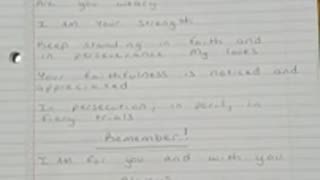 Are you weary
I am your strength
Keep standing in faith and
in perseverance my loves
Your faithfulness is noticed and
appreciated
In persecution, in peril, in
fiery trials
Remember!
I AM for you and with you